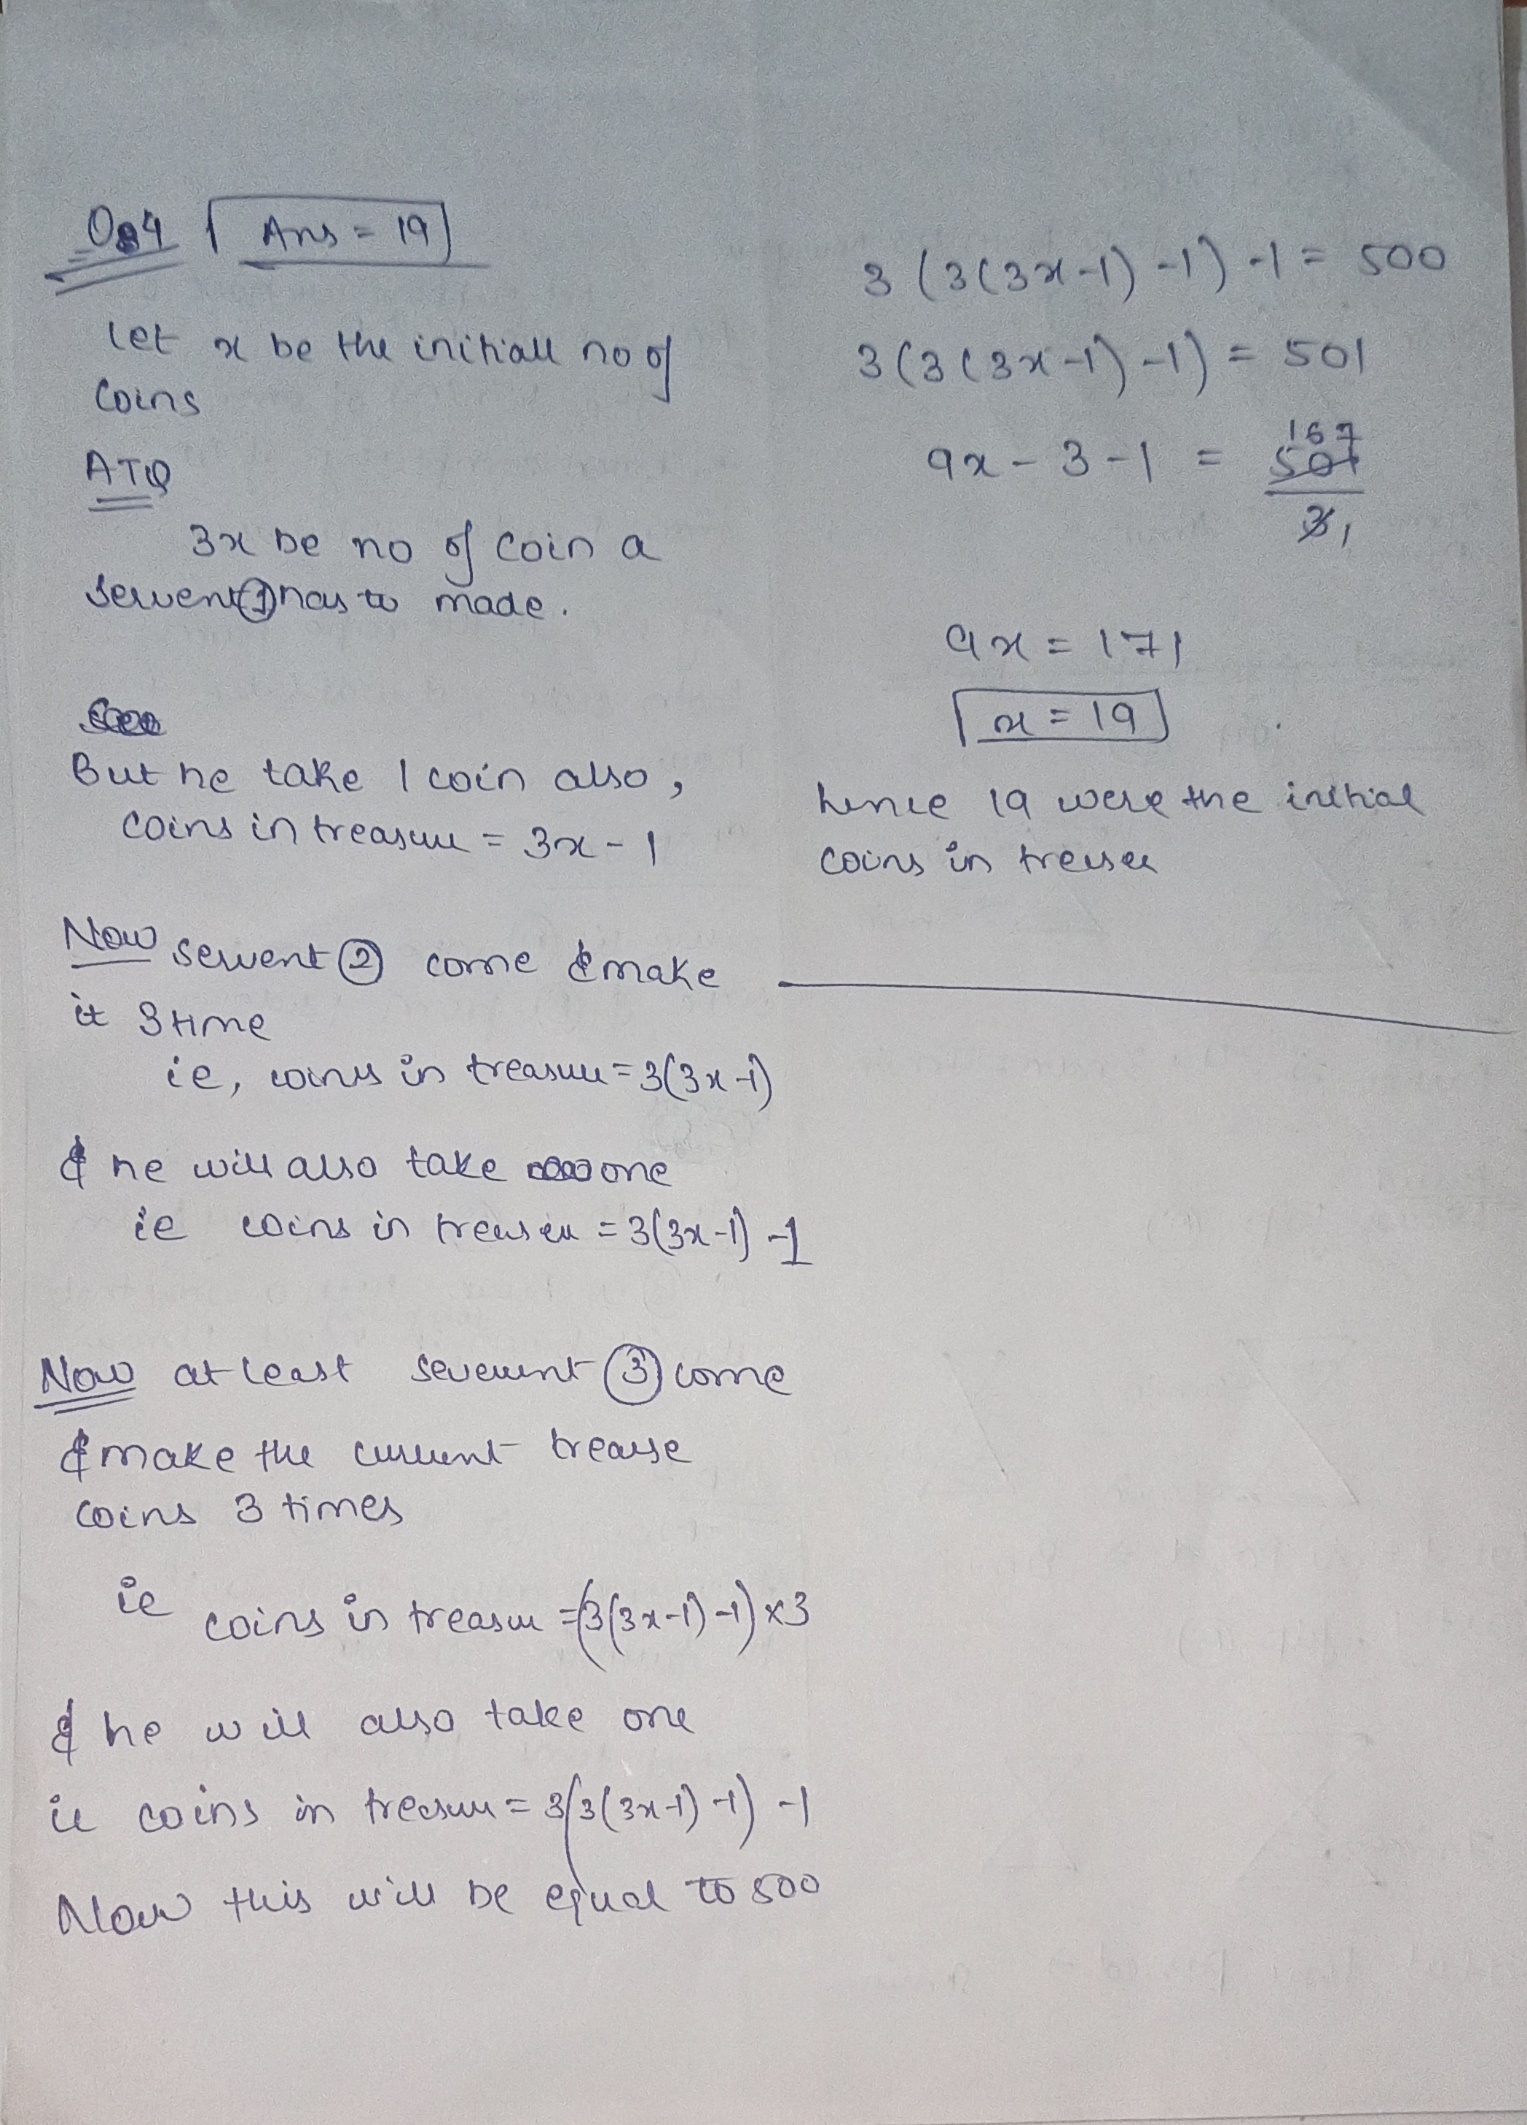 Q04 Ans = 19
let x be the initiall no of
coins
ATQ
3x be no of coin a
servent ① has to made.
But he take 1 coin also,
coins in treasure = 3x - 1
Now servent ② come & make
it 3 time
ie, coins in treasure = 3(3x-1)
& he will also take one
ie coins in treasure = 3(3x-1) -1
Now at least servent ③ come
& make the current trease
coins 3 times
ie coins in treasure = (3(3x-1)-1)×3
& he will also take one
ie coins in treasure = 3(3(3x-1)-1)-1
Now this will be equal to 500
3(3(3x-1)-1)-1 = 500
3(3(3x-1)-1) = 501
9x - 3 - 1 = 501/3 167 1
9x = 171
x = 19
hence 19 were the initial
coins in